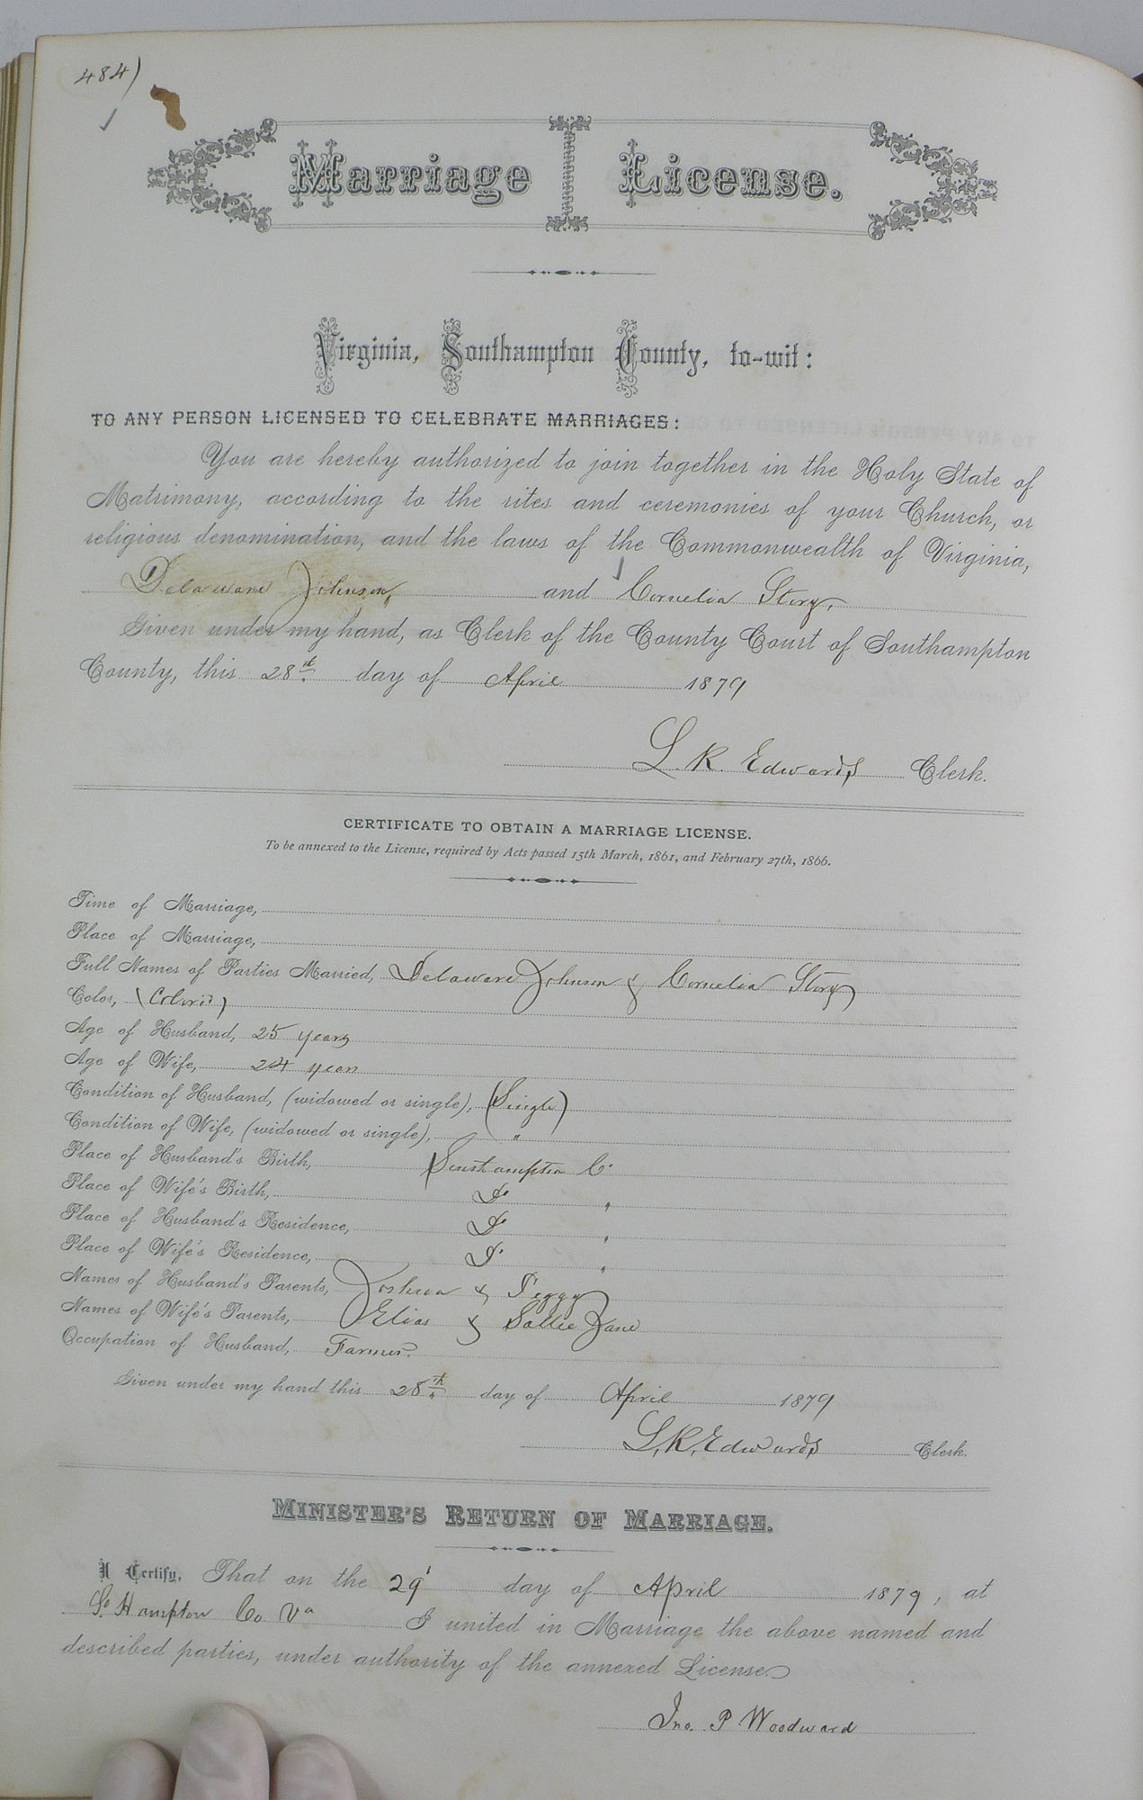 484)
Marriage License.
Virginia, Southampton County, to-wit:
TO ANY PERSON LICENSED TO CELEBRATE MARRIAGES:
You are hereby authorized to join together in the Holy State of
Matrimony, according to the rites and ceremonies of your Church, or
religious denomination, and the laws of the Commonwealth of Virginia,
Delaware Johnson, and Cornelia Story,
Given under my hand, as Clerk of the County Court of Southampton
County, this 28th day of April 1879
L. R. Edwards Clerk.
CERTIFICATE TO OBTAIN A MARRIAGE LICENSE.
To be annexed to the License, required by Acts passed 15th March, 1861, and February 27th, 1866.
Time of Marriage,
Place of Marriage,
Full Names of Parties Married, Delaware Johnson & Cornelia Story
Color, (Colored)
Age of Husband, 25 years
Age of Wife, 24 years
Condition of Husband, (widowed or single), (Single)
Condition of Wife, (widowed or single), "
Place of Husband's Birth, Southampton Co
Place of Wife's Birth, Do "
Place of Husband's Residence, Do "
Place of Wife's Residence, Do "
Names of Husband's Parents, Joshua & Peggy
Names of Wife's Parents, Elias & Sallie Jane
Occupation of Husband, Farmer.
Given under my hand this 28th day of April 1879
L. R. Edwards Clerk.
MINISTER'S RETURN OF MARRIAGE.
I Certify, That on the 29' day of April 1879, at
So Hampton Co Va I united in Marriage the above named and
described parties, under authority of the annexed License
Jno. P Woodward